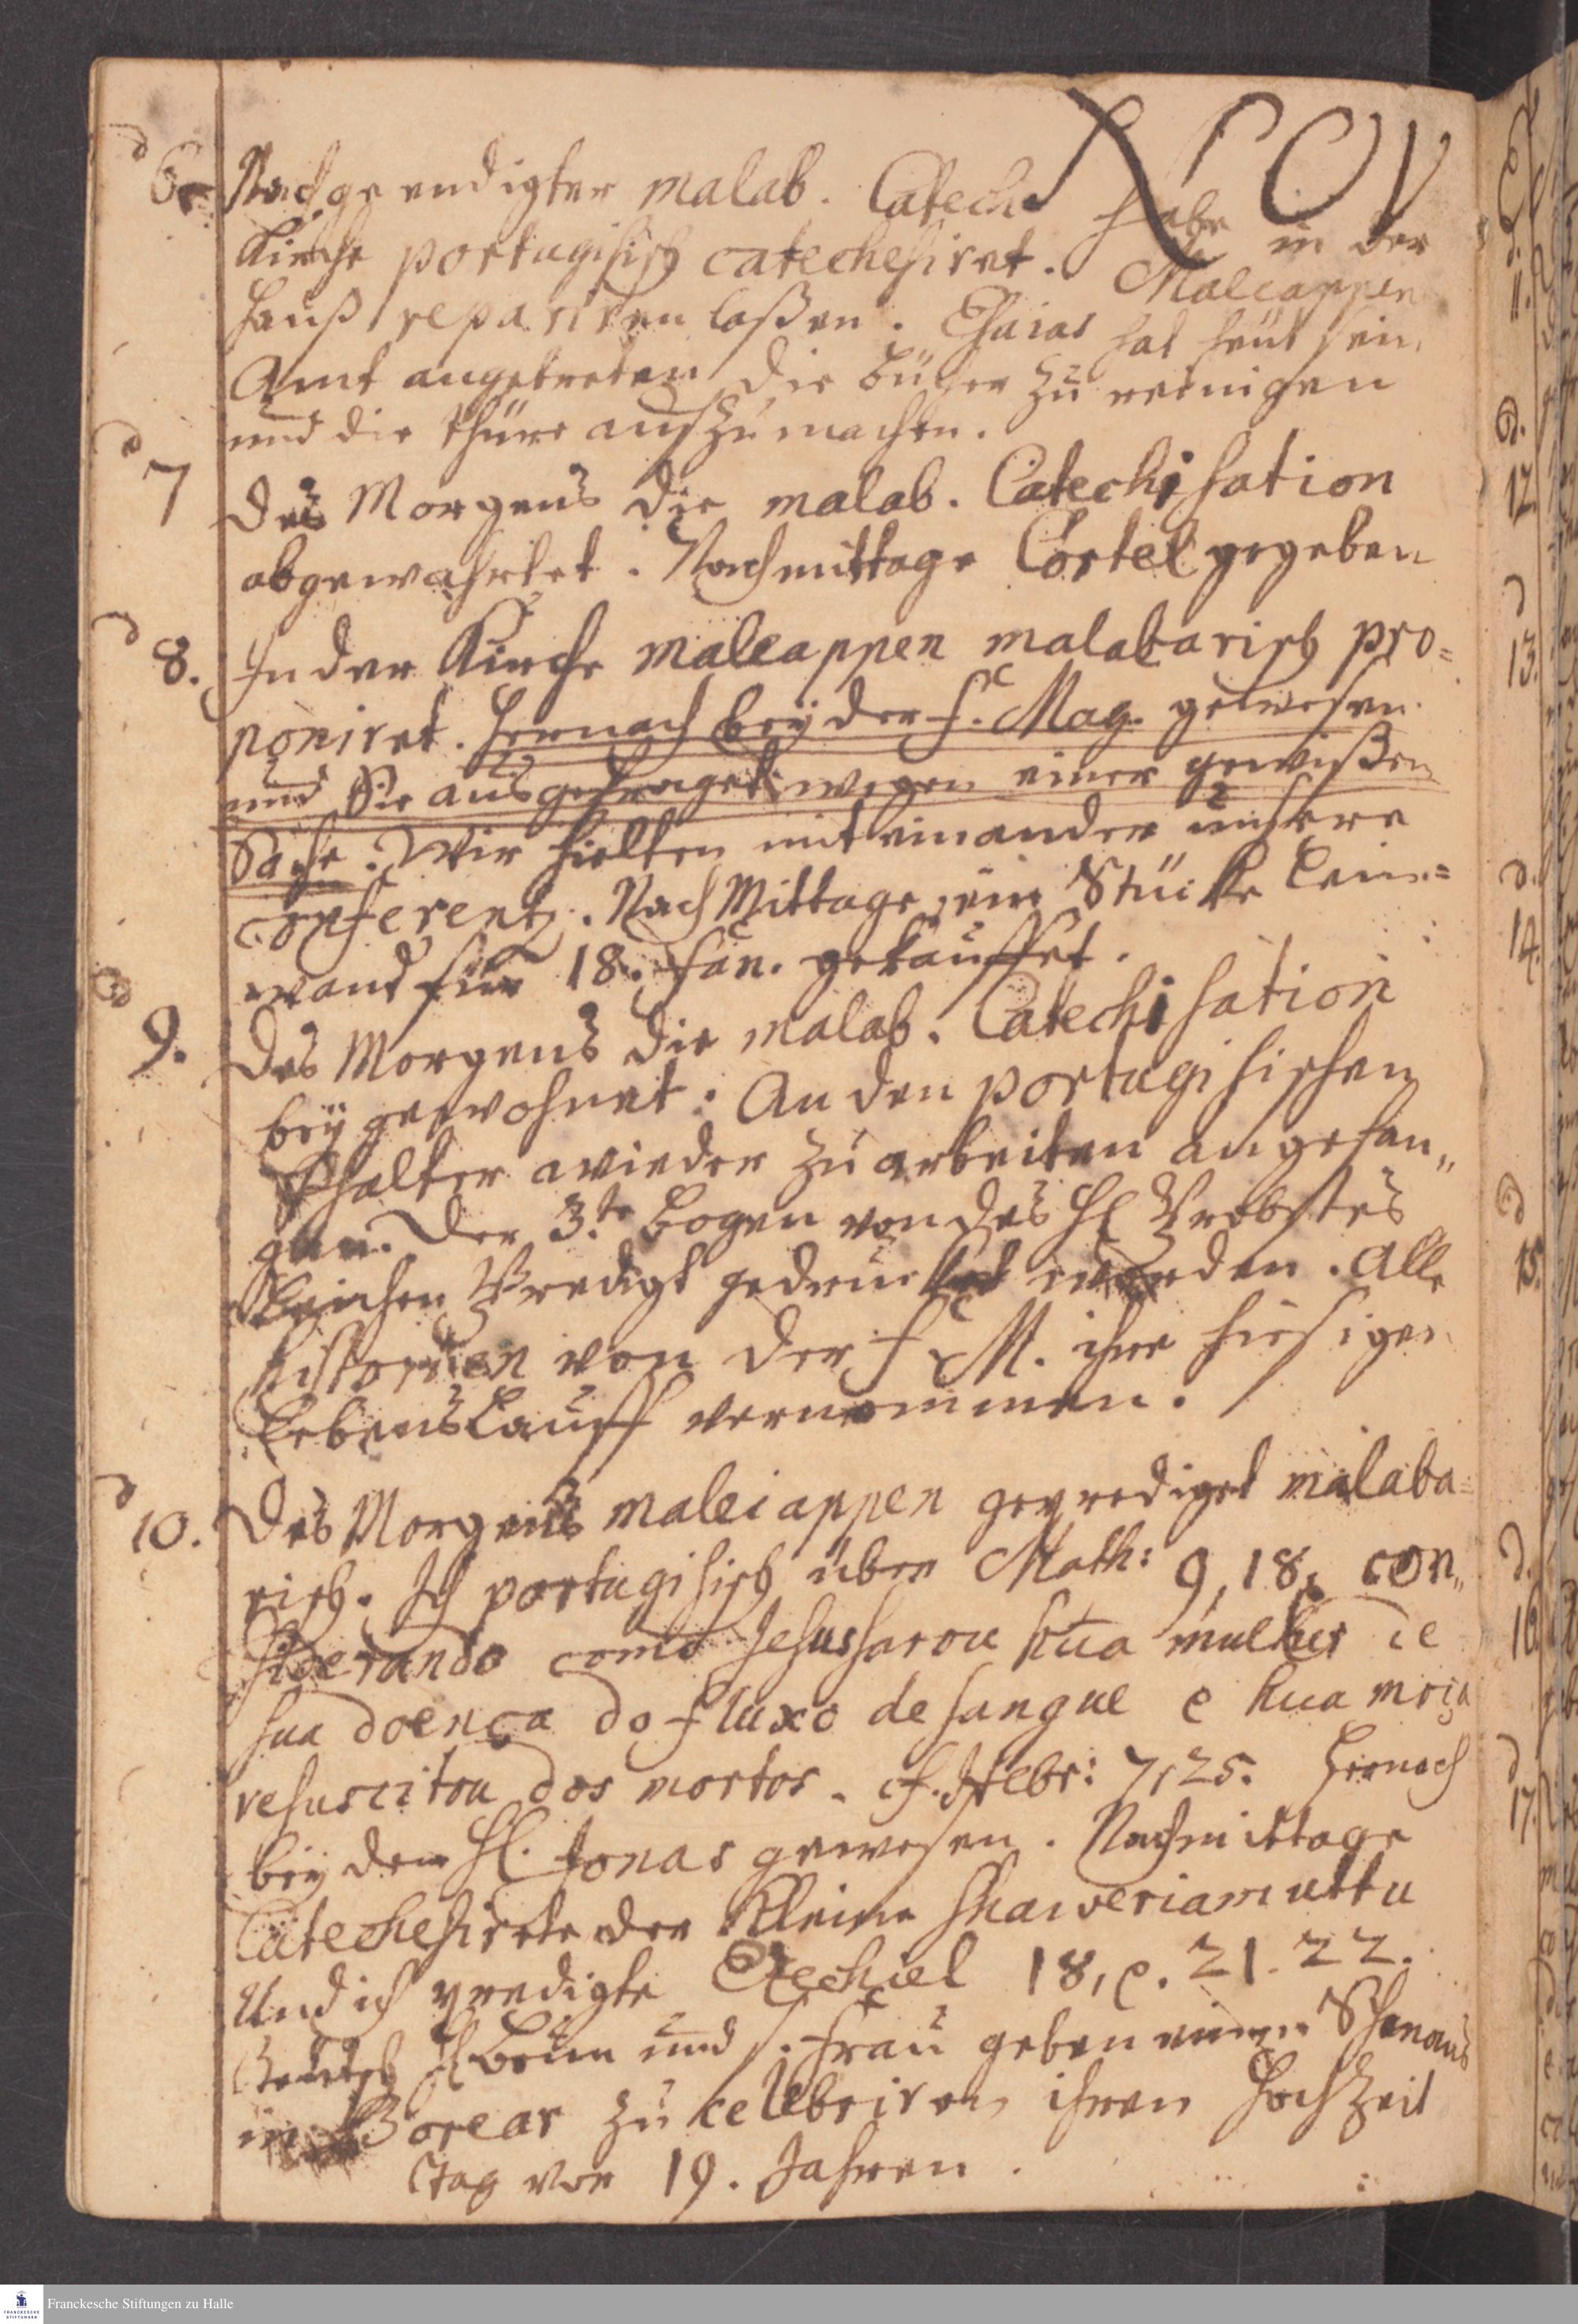 Nov
d
6. Nach geendigter malab. Catech. habe in der
Kirche portugisisch catechesiret. Maleappen
Hauß repariren laßen. Esaias hat heut sein
Amt angetreten die Bücher zu reinigen
und die Thüre aufzumachen.
d
7 Des Morgens die malab. Catechisation
abgewahrtet. Nachmittage Cörtel gegeben
d
8. In der Kirche maleappen malabarisch pro=
poniret. Hernach bey der f. Mag. gewesen
und Sie ausgefraget wegen einer gewißen
Sache. Wir hielten mit einander unsere
conferentz. Nach Mittage ein Stücke Lein=
wand für 18. fan. gekauffet.
d
9. Des Morgens die malab. Catechisation
beygewohnet. An den portugisischen
Psalter wieder zu arbeiten angefan„
gen. Der 3.te Bogen von des H Probstes
Leichen Predigt gedrucket worden. Alle
historien von der f. M. ihre hiesigen
Lebens Lauff vernommen.
d
10. Des Morgens maleiappen geprediget malaba=
risch. Ich portugisisch über Math: 9, 18. con„
siderando como Jesus sarou hũa mulher de
sua doença do fluxo de sangue e hua moça
resuscitou dos mortos. cf. Hebr: 7, 25. Hernach
bey dem H. Jonas gewesen. Nachmittage
Catechesirete der Kleine Schawveriamuttu
Und ich predigte Ezechiel 18, v. 21. 22.
Teutsch H Brun und s. Frau geben einen Schmaus
in Porear zu celebriren ihren Hochzeit
Tag vor 19. Jahren.
d.
11.
d.
12
d
13.
d.
14.
d
15.
d.
16
d
17.
Franckesche Stiftungen zu Halle